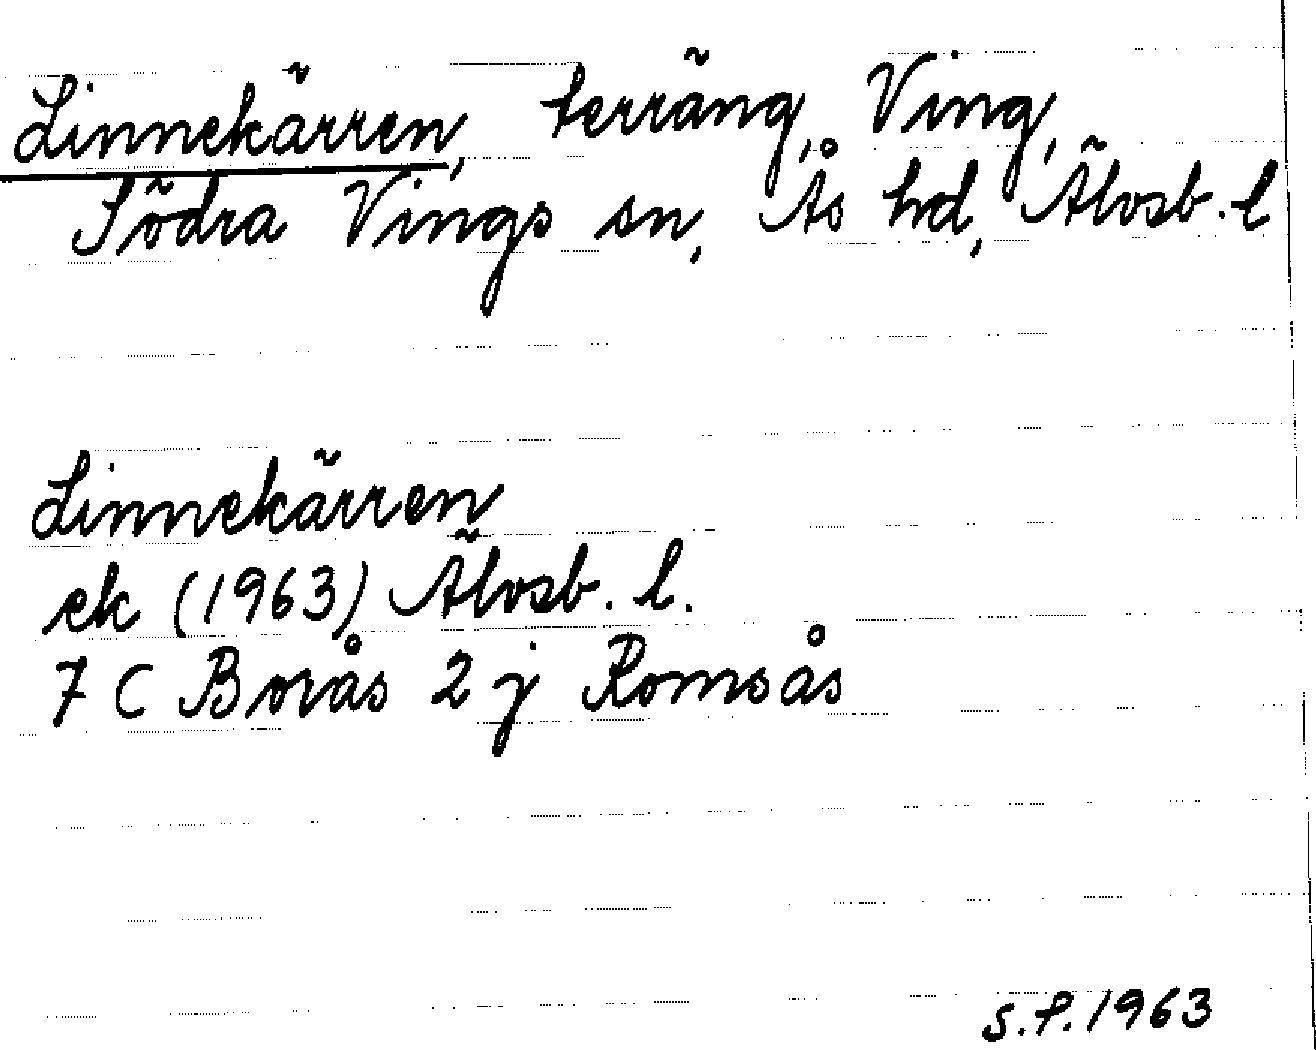 Linnekärren, terräng, Ving,
Södra Vings sn, Ås hd, Älvsb. l
Linnekärren
ek (1963) Älvsb. l.
7 C Borås 2 j Romsås
S.P. 1963